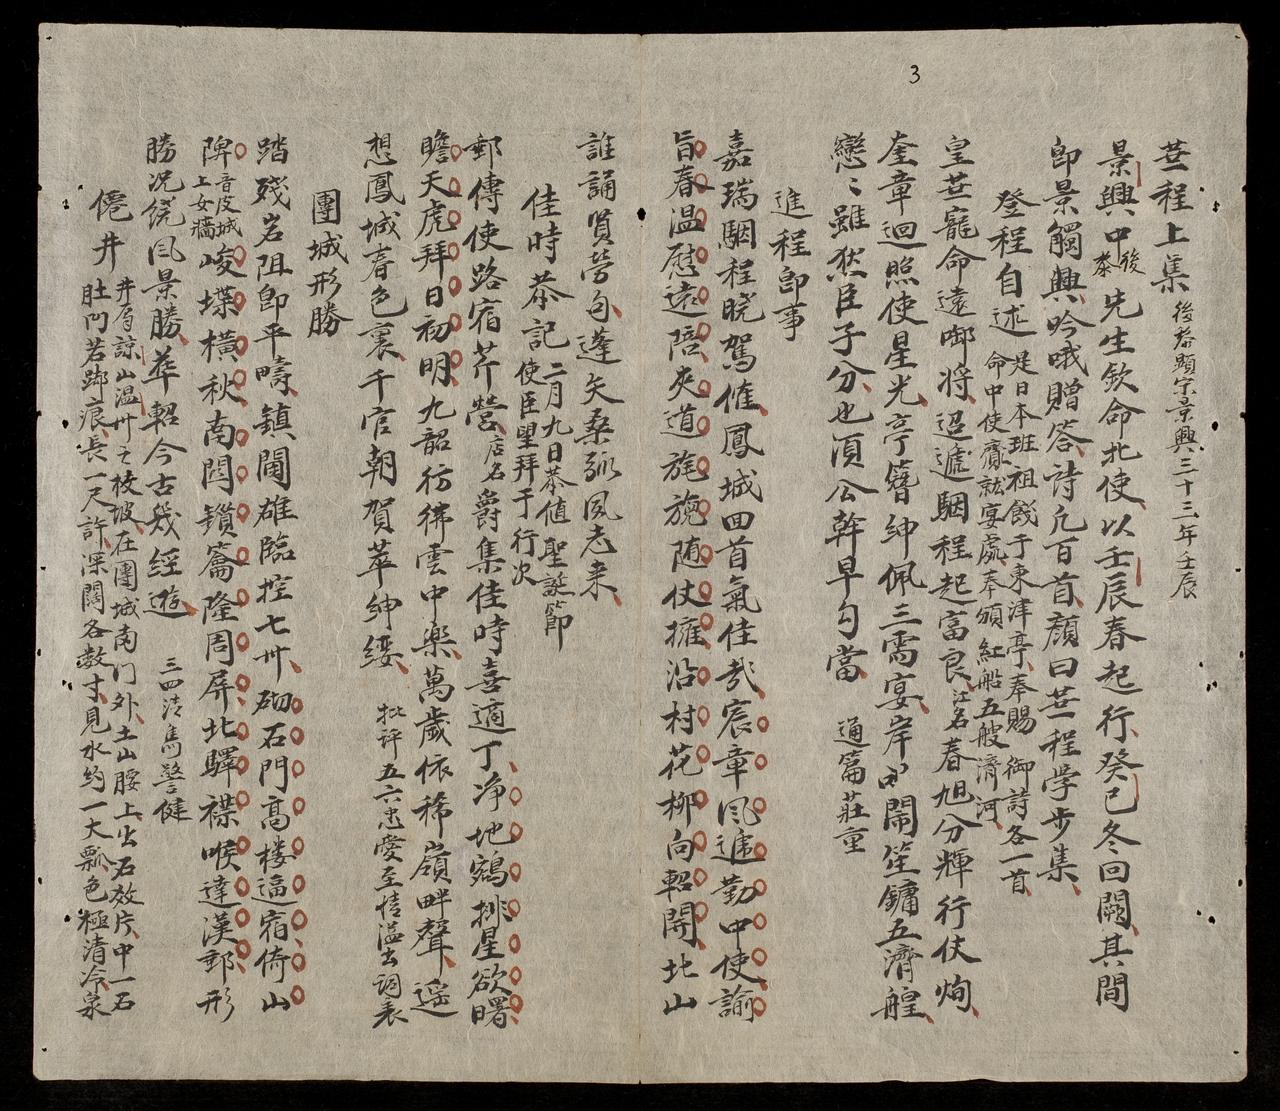 3
苝程上集 後黎顯宗景興三十三年壬辰
景興中後黎先生欽命北使以壬辰春起行癸巳冬回闕其間
卽景觸興吟哦贈答詩凢百首顏曰苝程学步集
登程自述 是日本班祖餞于東津亭奉賜御詩各一首
命中使賡就宴處奉頒紅船五艘濟河
皇苝寵命遠啣将迢遞駰程起富良江名春旭分輝行仗炯
奎章迴照使星光亭簪紳佩三需宴岸鬧笙鏞五濟艎
戀〻雖狄臣子分也湏公幹早勾當 通篇莊重
進程卽事
嘉瑞駰程晓駕催鳳城回首氣佳哉宸章風递勤中使諭
旨春温慰遠陪夾道旌旗随仗擁沿村花柳向軺開北山
誰誦贤劳句蓬矢桑弧夙志来
佳時恭記 二月九日恭值聖誕節
使臣望拜于行次
郵傳使路宿芹營店名爵集佳時喜適丁净地鵷排星欲曙
瞻天虎拜日初明九韶彷彿雲中樂萬歲依稀嶺畔聲遥
想鳳城春色裏千官朝賀萃紳綏 批评五六忠愛至情溢出词表
團城形勝
踏殘岩阻卽平疇鎮閫雄臨控七卅砌石門高楼逼宿倚山
陴音皮城上女牆峻堞橫秋南関鎖鑰隆周屏北驛襟喉達漢郵形
勝况繞风景勝華軺今古幾經遊 三四清雋警健
僊井 井唇諒山温卅之枚坡在團城南门外土山腰上出石数片中一石
肚门若踋痕長一尺許深闊各数寸見水约一大瓢色極清冷泉